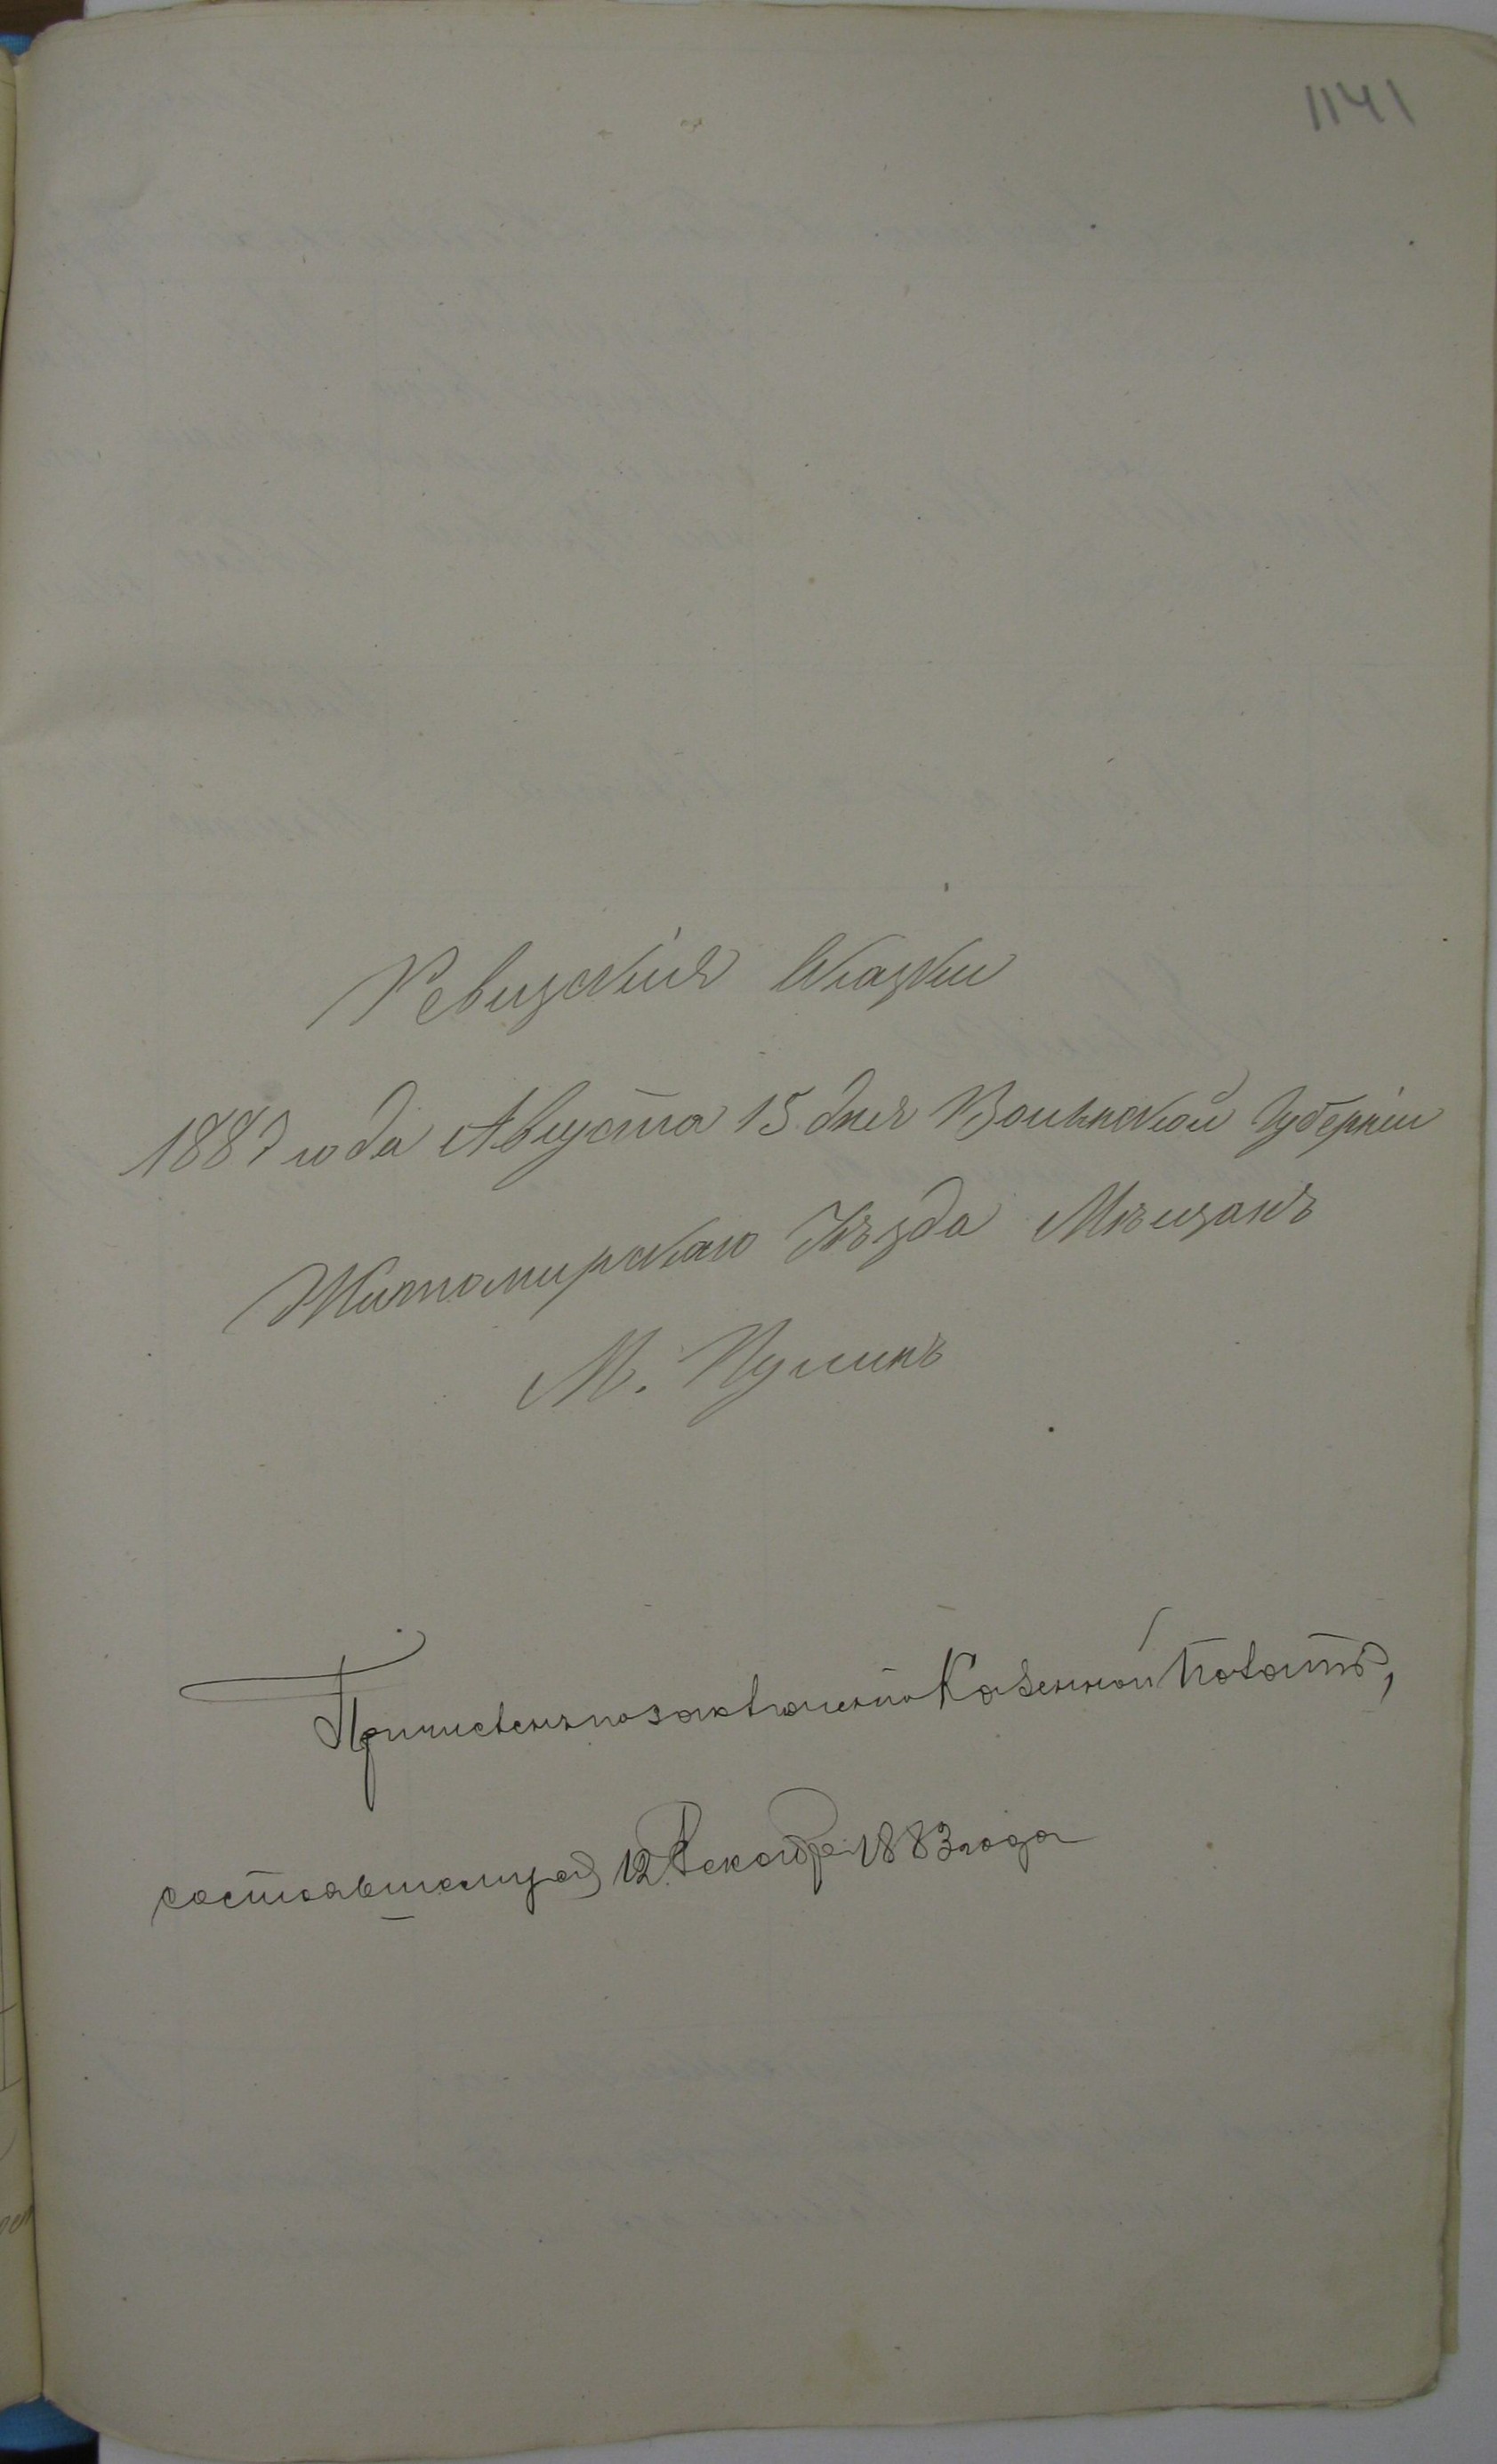 1141
Ревизскія Сказки
1883 года Августа 15 дня Волынской Губерніи
Житомирскаго Уѣзда Мѣщанъ
М. Пулинъ
Причисленъ по заключенію Казенной Палаты,
состоявшемуся 12 Декабря 1883 года